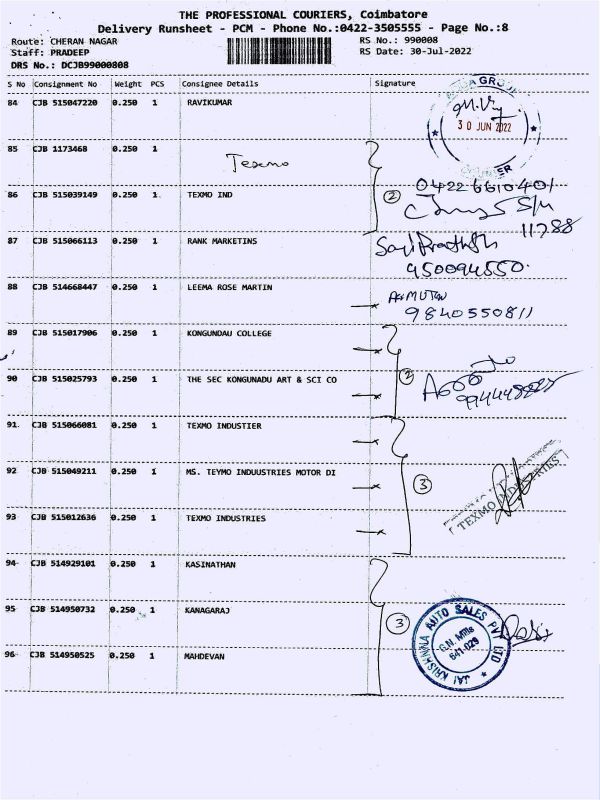 THE PROFESSIONAL COURIERS, Coimbatore
Delivery Runsheet - PCM - Phone No.:0422-3505555 - Page No.:8
Route: CHERAN NAGAR RS No.: 990008
Staff: PRADEEP RS Date: 30-Jul-2022
DRS No.: DCJB99000808
S No Consignment No Weight PCS Consignee Details Signature
84 CJB 515047220 0.250 1 RAVIKUMAR
30 JUN 2022
85 CJB 1173468 0.250 1 Texmo
86 CJB 515039149 0.250 1 TEXMO IND 2 04226610401
11788
87 CJB 515066113 0.250 1 RANK MARKETINS
950094550
88 CJB 514668447 0.250 1 LEEMA ROSE MARTIN
9840550811
89 CJB 515017906 0.250 1 KONGUNDAU COLLEGE
90 CJB 515025793 0.250 1 THE SEC KONGUNADU ART & SCI CO 2
91 CJB 515066081 0.250 1 TEXMO INDUSTIER
92 CJB 515049211 0.250 1 MS. TEYMO INDUUSTRIES MOTOR DI 3
TEXMO INDUSTRIES
93 CJB 515012636 0.250 1 TEXMO INDUSTRIES
94 CJB 514929101 0.250 1 KASINATHAN
95 CJB 514950732 0.250 1 KANAGARAJ 3
JAI KRISHNAA AUTO SALES PVT LTD
G.N. Mills
641-029
96 CJB 514950525 0.250 1 MAHDEVAN